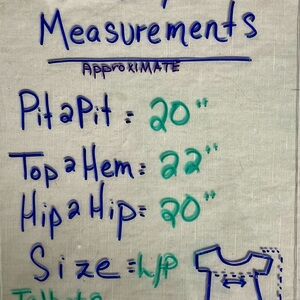 Measurements
APPROXIMATE
Pit2Pit = 20"
Top2Hem= 22"
Hip2Hip= 20"
Size =L/P